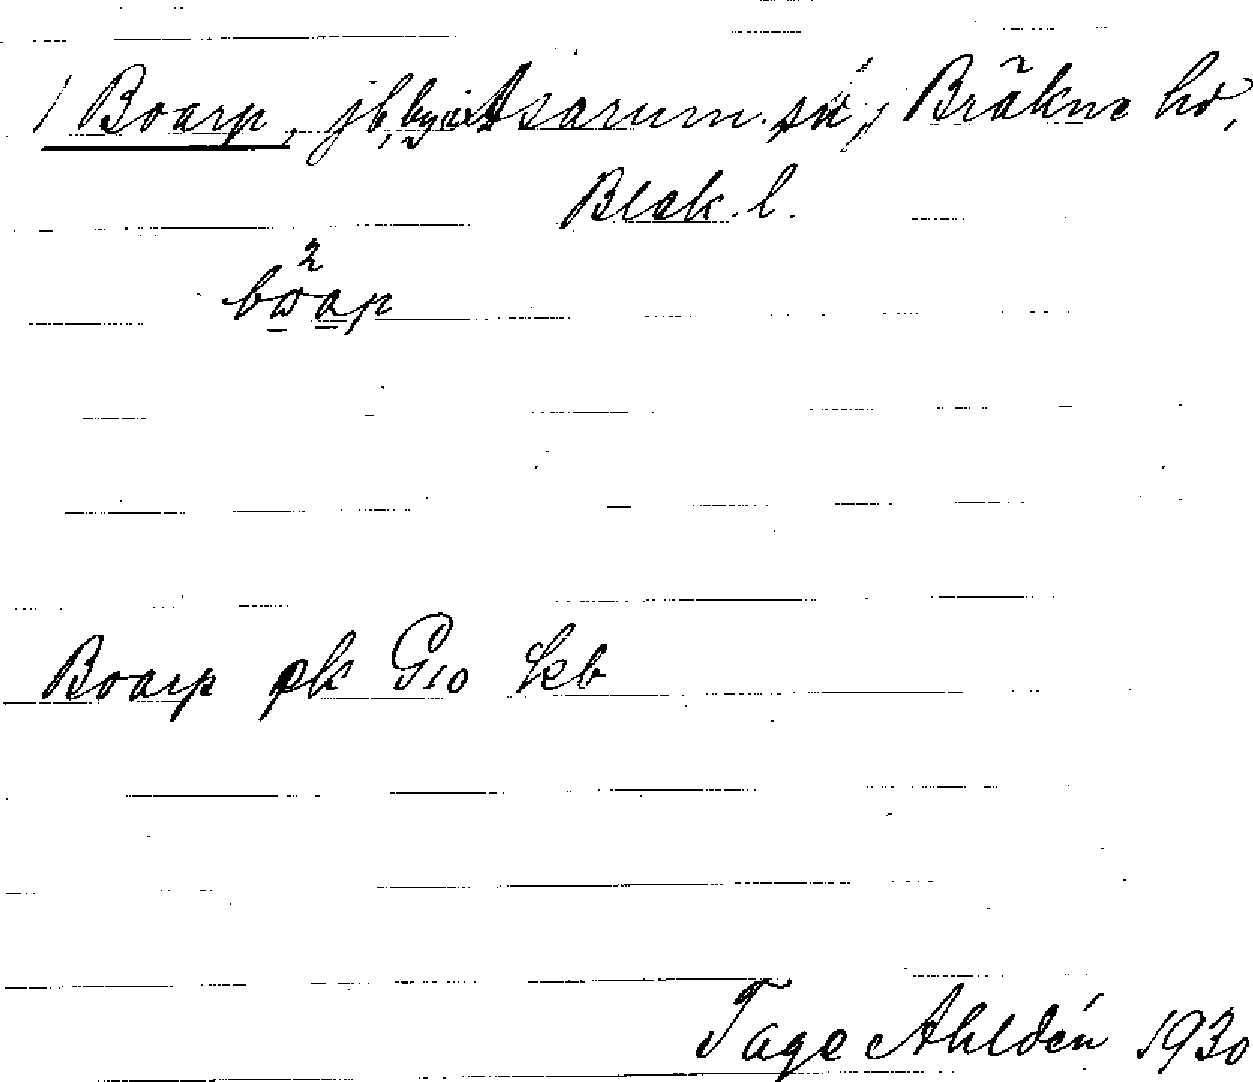 1 Boarp, jb, by i Asarum sn, Bräkne hd,
Blek. l.
2
boap
Boarp pk G10 kb
Tage Ahldén 1930